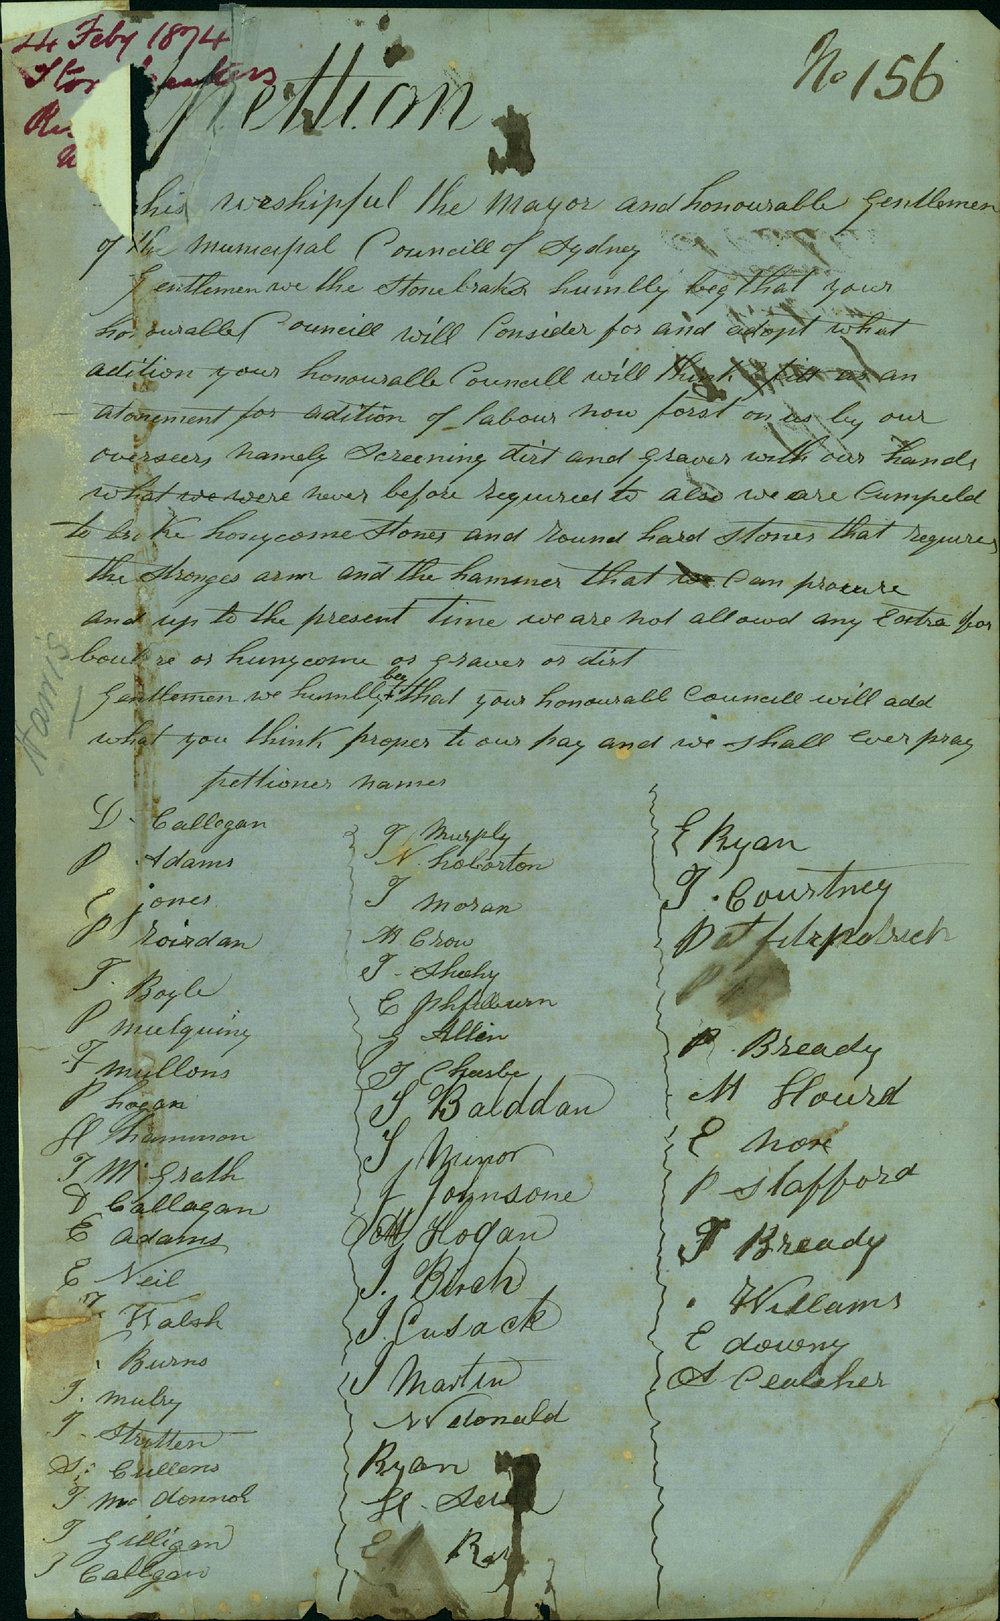 24 Feby 1874
No 156
Pettion
his worshipful the Mayor and honourable Gentlemen
of the Municipal Councill of Sydney
Gentlemen we the Stonebrakers humbly beg that your
honourable Councill will Consider for and adopt what
adition your honourable Councill will think fitt as an
atonement for adition of labour now forst on us by our
overseers namely Screening dirt and graver with our hands
what we were never before required to also we are Cumpeld
to brake honycome Stones and round hard stones that requires
the stronges arm and the hammer that we Can procure
and up to the present time we are not allowd any Extra for
or hunycome or graver or dirt
Gentlemen we humbly beg that your honourabll Councill will add
what you think proper to our pay and we shall Ever pray
pettioner names
D. Callogan
P Adams
E jones
P roirdan
T. Boyle
P mulquiny
F mullons
P hogan
H hammon
T McGrath
D Callagan
E Adams
E Neil
Walsh
Burns
T. mulry
T. Stretten
S. Cullens
T Mc donnol
T Gilligan
J Callgan
T Murply
N. hoborton
T moran
M Crow
T. Shehy
E
G Allin
T
T Balddan
T Minor
J Johnsone
M Hogan
J. Birch
J. Cusack
J Martin
W donald
Ryan
H.
E
E Ryan
T. Courtney
Pat fitzpatrick
P. Bready
M Hourd
E hore
P Stafford
T Bready
Willams
E downy
S Cealcher
Harris